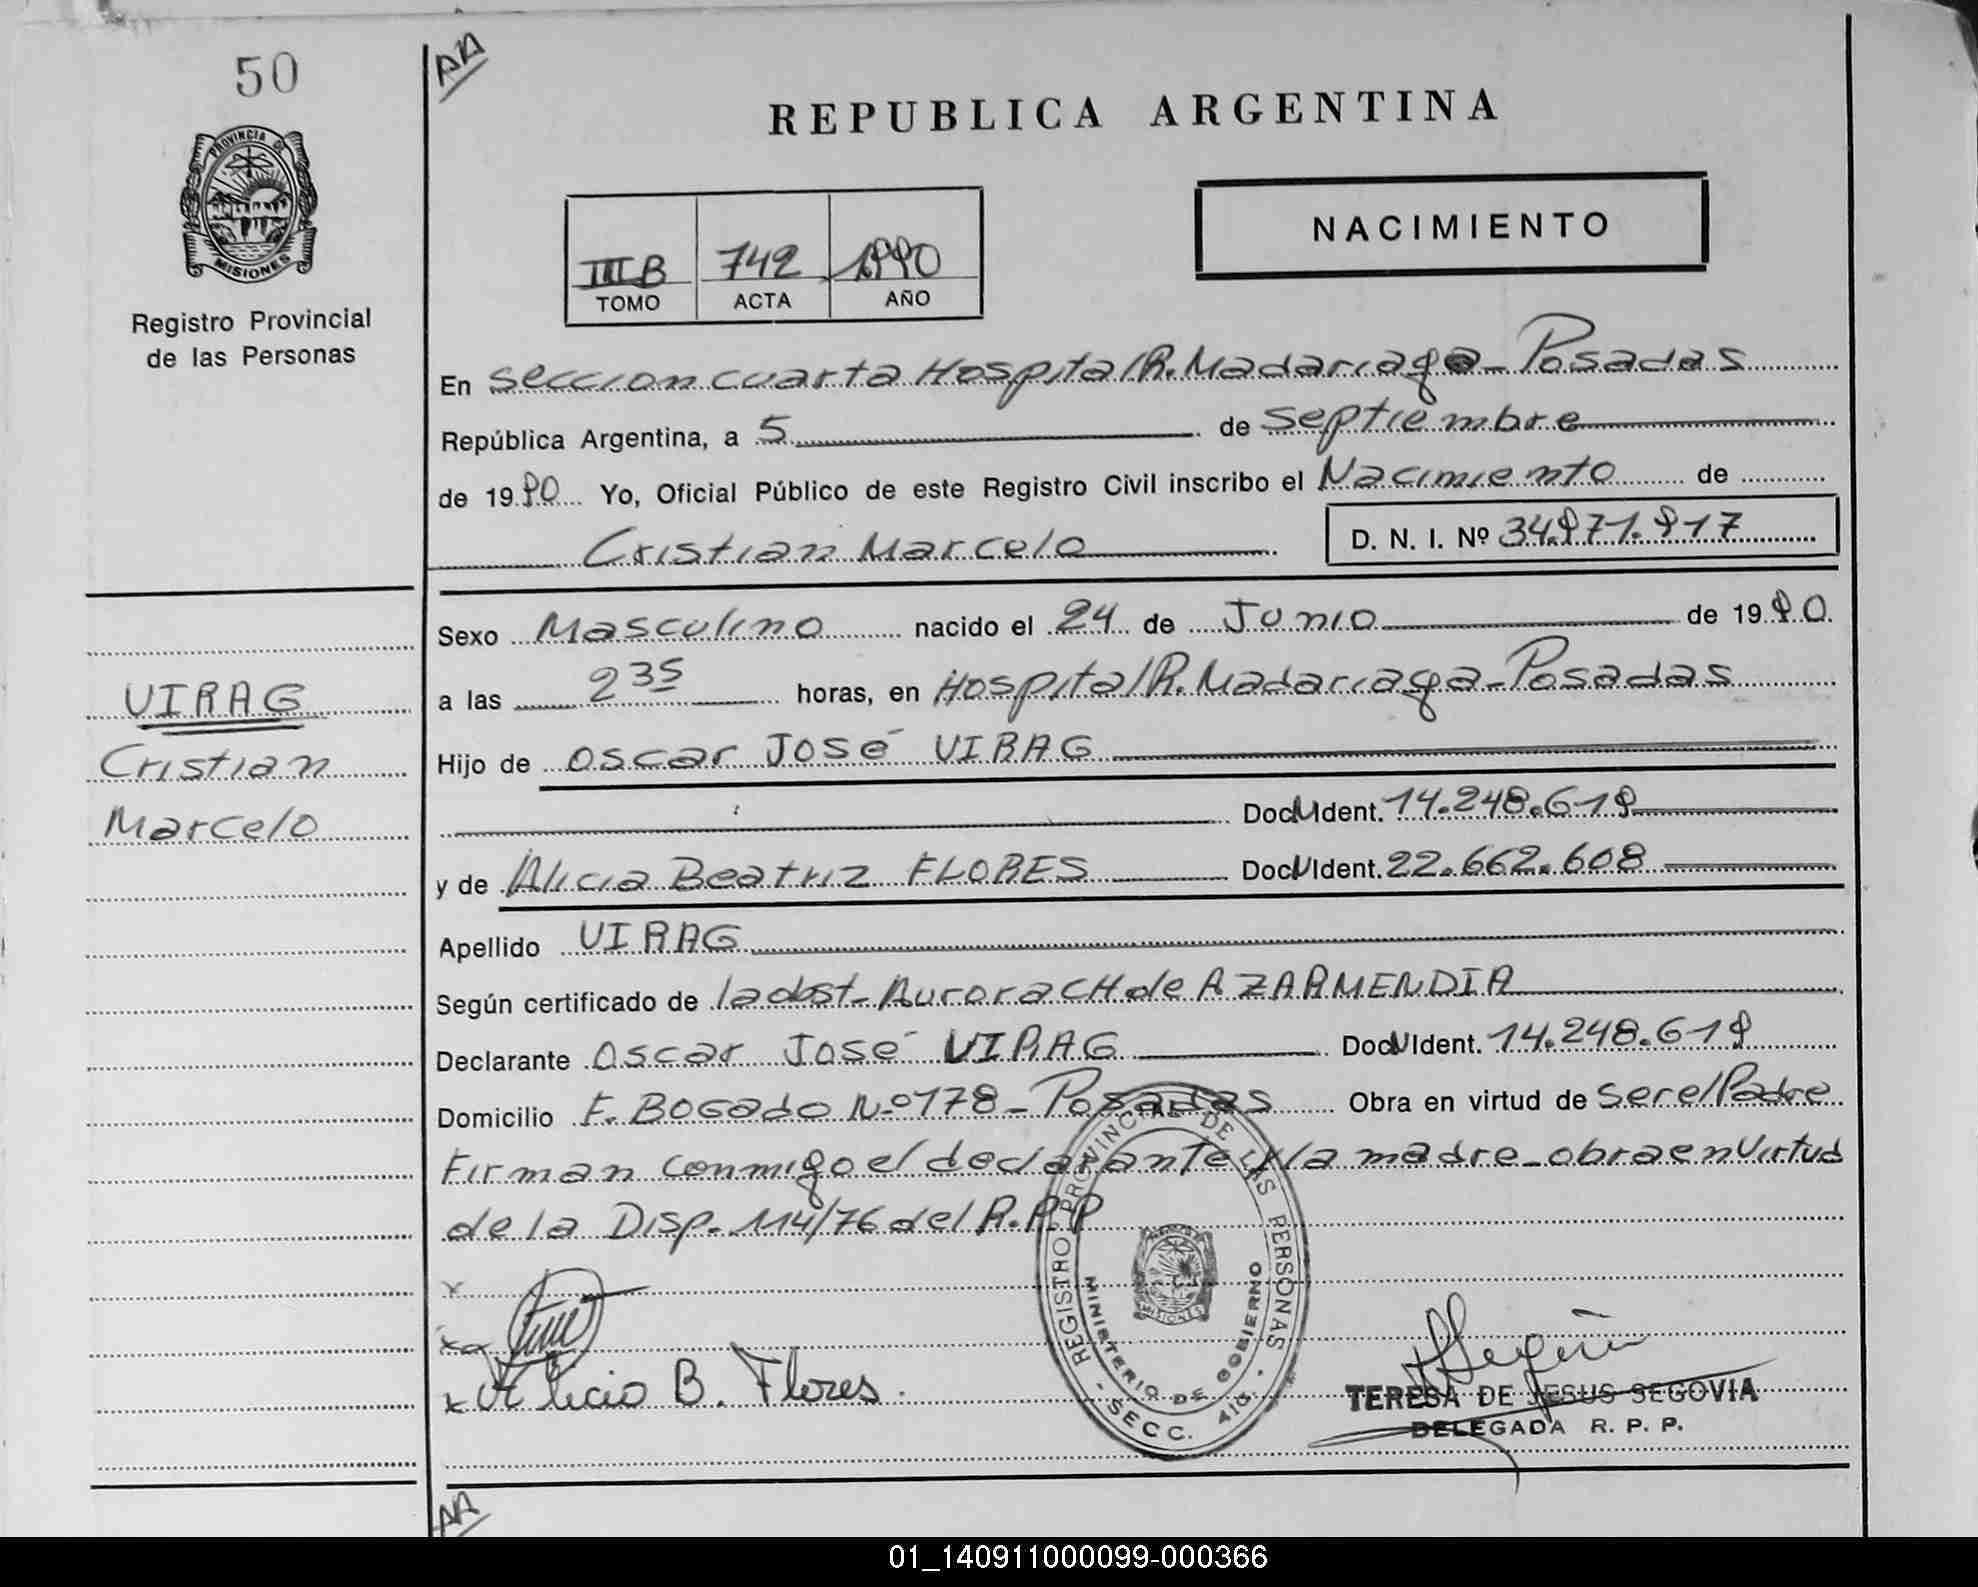 50
AA
PROVINCIA DE
MISIONES
Registro Provincial
de las Personas
REPUBLICA ARGENTINA
NACIMIENTO
III B 742 1990
TOMO ACTA AÑO
En seccion cuarta Hospital R. Madariaga - Posadas
República Argentina, a 5 de septiembre
de 1990 Yo, Oficial Público de este Registro Civil inscribo el Nacimiento de
Cristian Marcelo D. N. I. Nº 34.971.917
Sexo Masculino nacido el 24 de Junio de 1990
a las 2 35 horas, en Hospital R. Madariaga - Posadas
Hijo de Oscar José VIRAG
Doc. Ident. 14.248.619
y de Alicia Beatriz FLORES Doc. Ident. 22.662.608
Apellido VIRAG
Según certificado de la obst. Aurora CH de AZARMENDIA
Declarante Oscar José VIRAG Doc. Ident. 14.248.619
Domicilio F. Bogado Nº 178 - Posadas Obra en virtud de ser el Padre
Firman conmigo el declarante y la madre - obra en virtud
de la Disp. 114/76 del R.P.P
VIRAG
Cristian
Marcelo
x
x
x Alicia B. Flores.
REGISTRO PROVINCIAL DE LAS PERSONAS
MINISTERIO DE GOBIERNO
MISIONES
- SECC. 4ta. -
TERESA DE JESUS SEGOVIA
DELEGADA R. P. P.
AA
01_140911000099-000366